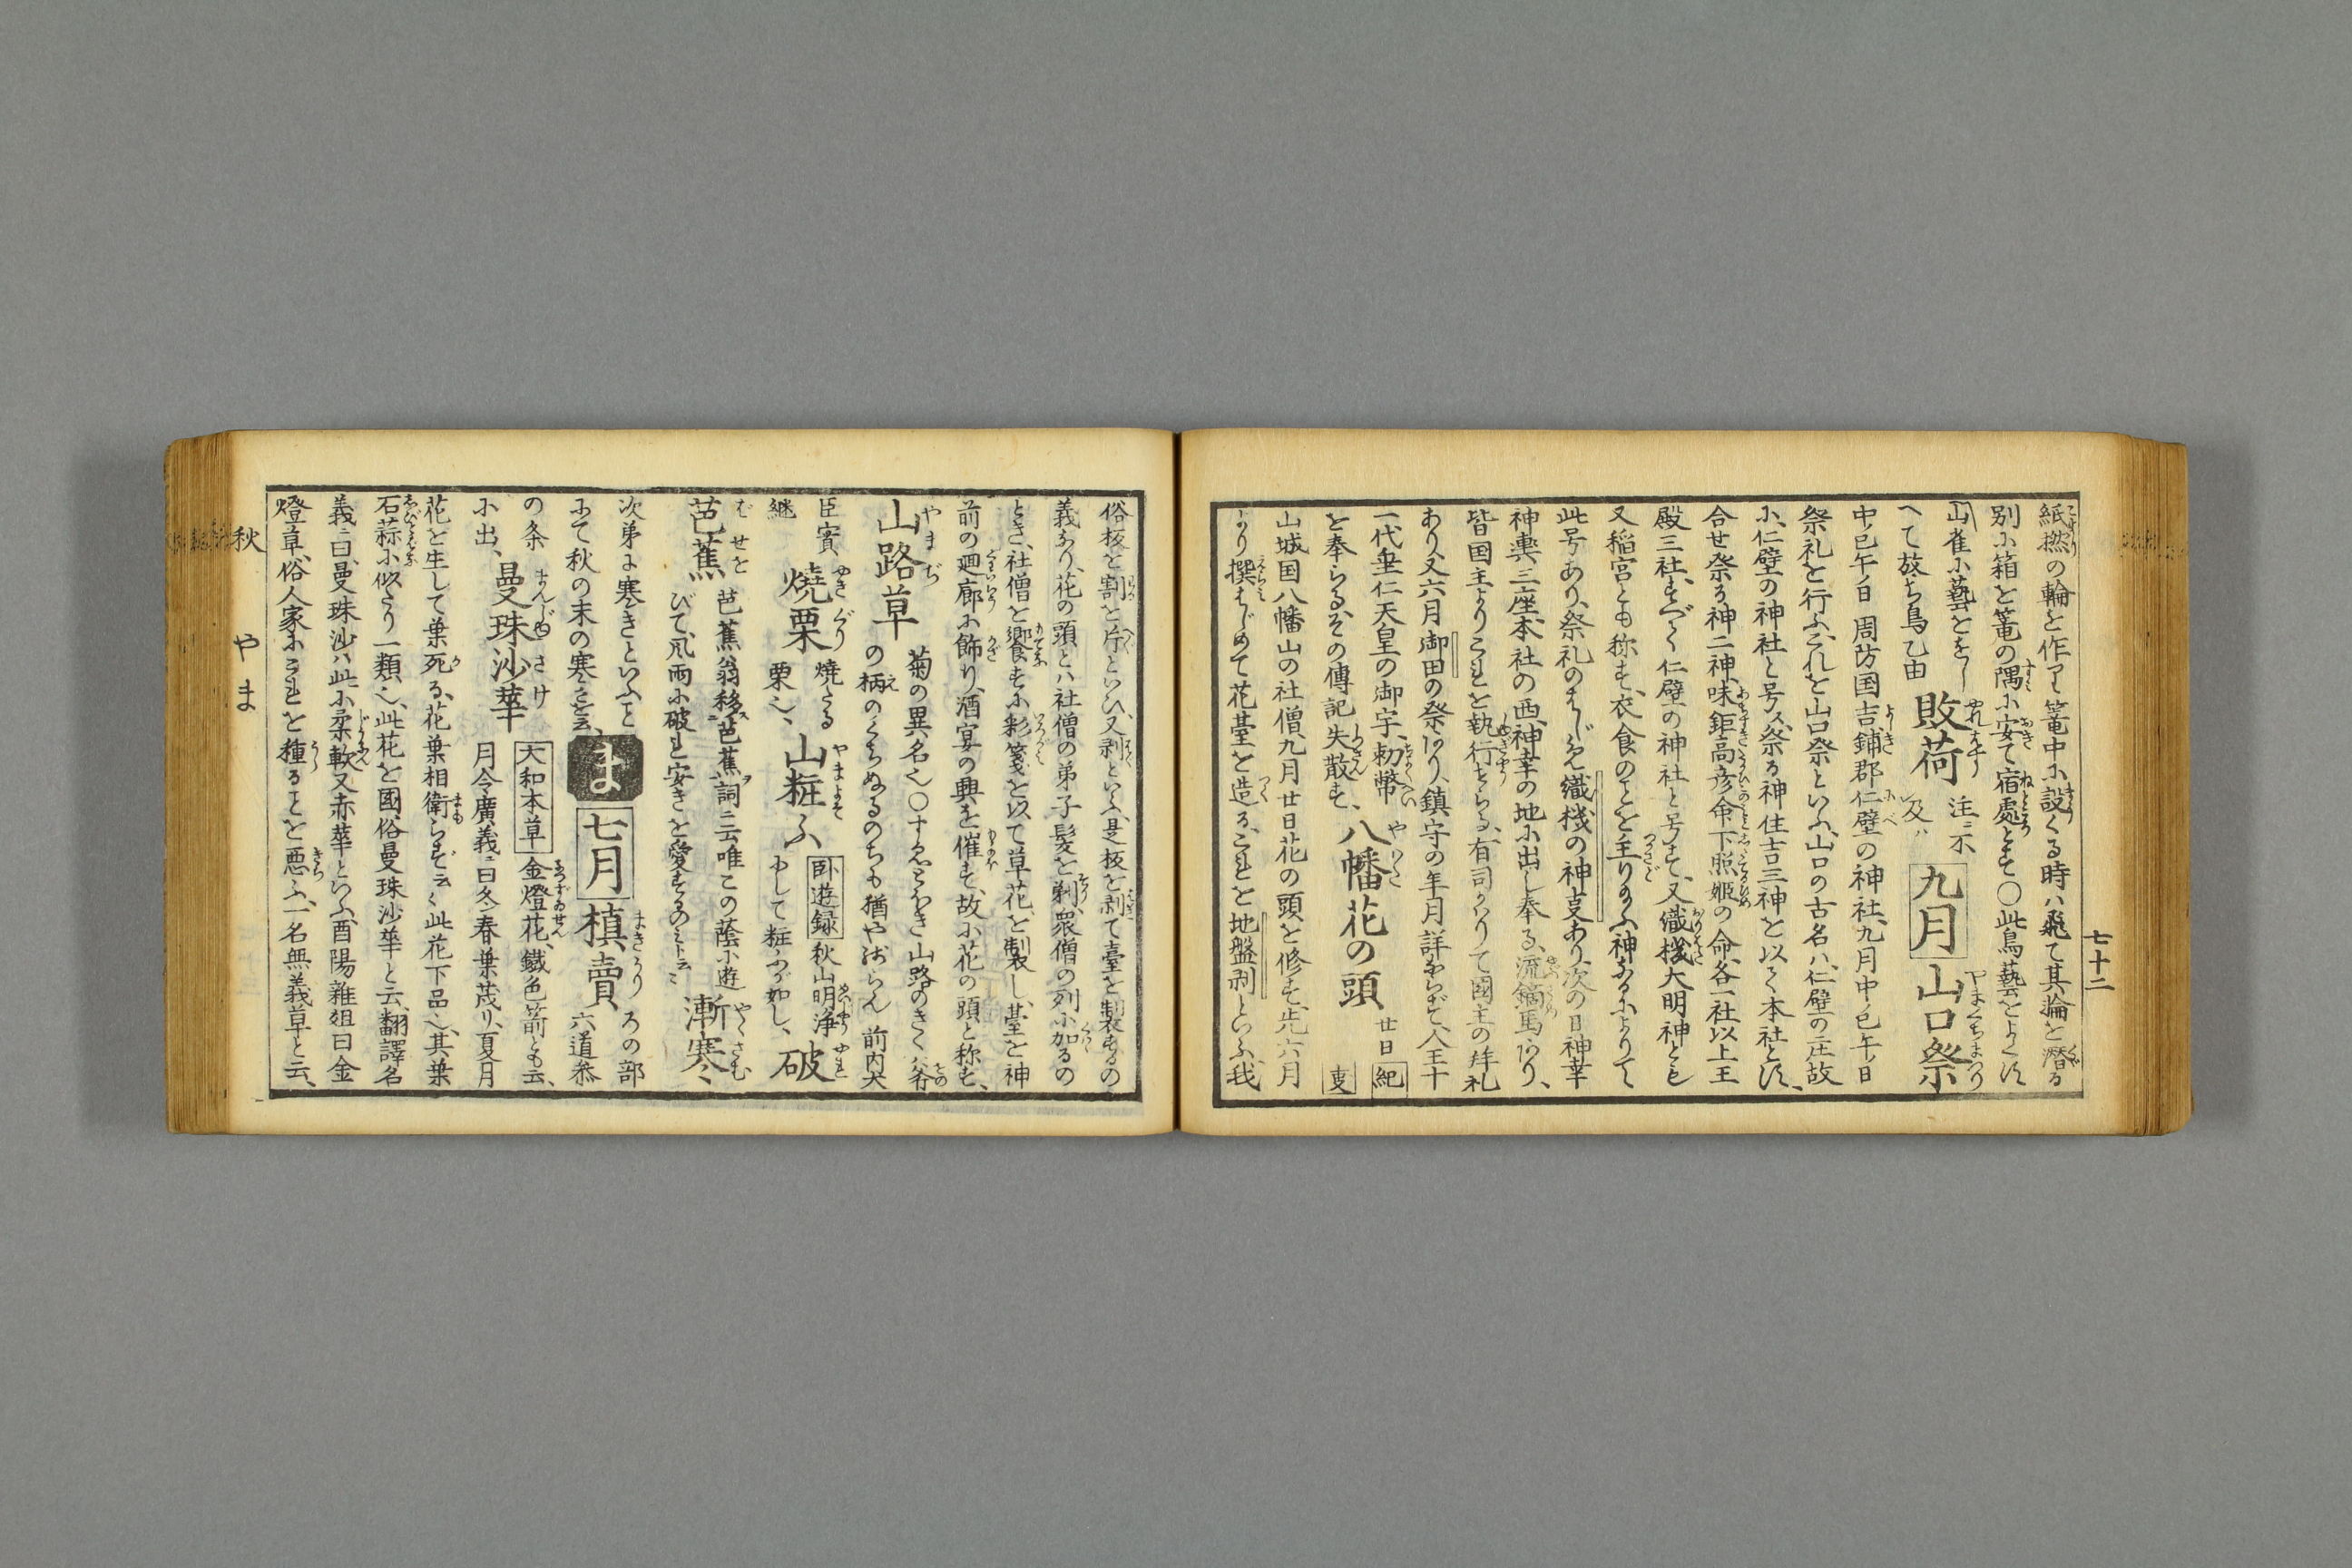 七十二
紙撚の輪を作り篭中に設くる時ハ飛て其輪を潜る
別に箱を篭の隅に安て宿處とす〇此鳥藝をよくす
山雀に藝をを
へて放ち鳥乙由 敗荷 注ニ不及ハ 九月 山口祭
中ノ巳午ノ日周防国吉鋪郡仁壁の神社九月中ノ巳午ノ日
祭礼を行ふこれを山口祭といふ山口の古名ハ仁壁の庄故
に仁壁の神社と号ス祭る神住吉三神を以て本社とす
合せ祭る神二神味鉏高彦命下照姫の命各一社以上三
殿三社すべて仁壁の神社と号す又織機大明神とも
又稲宮とも称す衣食のことを主り給ふ神なるによりて
此号あり祭礼のはじめ織機の神事あり次の日神幸
神輿三座本社の西神幸の地に出し奉る流鏑馬あり
皆国主よりこれを執行せらる有司ありて國主の拜礼
あり又六月御田の祭あり鎮守の年月詳ならず人王十
一代垂仁天皇の御宇勅幣 八幡花の頭 廿日 紀事
を奉らるその傳記失散す
山城国八幡山の社僧九月廿日花の頭を修す先六月
より撰はじめて花臺を造るこれを地盤剥といふ我
俗核を割を片といひ又剥といふ是板を剥て臺を製するの
義なり花の頭とハ社僧の弟子髪を剃衆僧の列に加るの
とき社僧を饗すに彩箋を以て草花を製し臺を神
前の廻廊に飾り酒宴の興を催す故に花の頭と称す
山路草 菊の異名也〇する山路のきく
の柄のくちぬるのちも猶や 前内大
臣實継 燒栗 燒たる栗也 山粧ふ 臥遊録 秋山明浄にして粧ふが如し 破
芭蕉 芭蕉翁移芭蕉詞ニ云唯この蔭に遊びて風雨に破れ安きを愛するのミト云ミ 漸寒
次第に寒きといふこと ま 七月 槙賣 ろの部六道參
にて秋の末の寒を云
の条に出 曼珠沙華 大和本草 金燈花鐵色箭とも云
月令廣義ニ曰冬春葉茂り夏月
花を生して葉死る花葉相衛らず云く此花下品也其葉
石蒜に似たり一類也此花を國俗曼珠沙華と云翻譯名
義ニ曰曼珠沙ハ此に柔軟又赤華といふ酉陽雜俎曰金
燈草俗人家にこれを種ることを悪ふ一名無義草と云
秋 やま